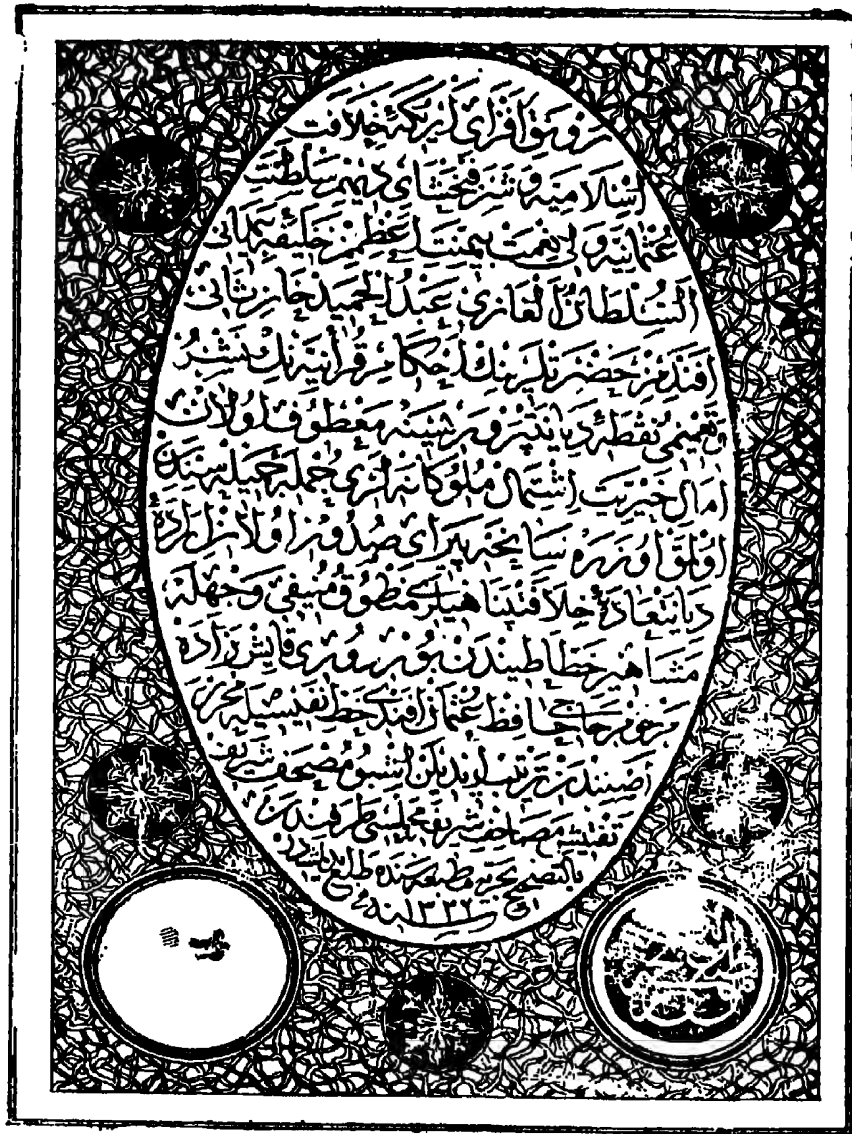 رونق افزای اریکهٔ خلافت
اسلامیه و شرفبخشای دیهیم سلطنت
عثمانیه ولی نعمت بیمنت اعظمز خلیفهٔ
السلطان الغازی عبد الحمید خان ثانی
افندیمز حضرتلرینک احکام قرآنیه نک نشر
و تعمیمی نقطهٔ دیانتپرورینه معطوف اولان
امال خیریت اشتمال ملوکانه لری جملهٔ جمیله سندن
اولمق اوزره سانحه پیرای صدور اولان ارادهٔ
دیانتعادهٔ خلافتپناهیلری منطوق منیفی وجهله
مشاهیر خطاطیندن بوردوری قایش زاده
مرحوم حاجی حافظ عثمان افندی خط نفیسیله محرر
اصلندن ترتیب ایدیلن اشبو مصحف شریف
تفتیش مصاحف شریفه مجلسی طرفندن
بالتصحیح بحریه مطبعه سنده طبع